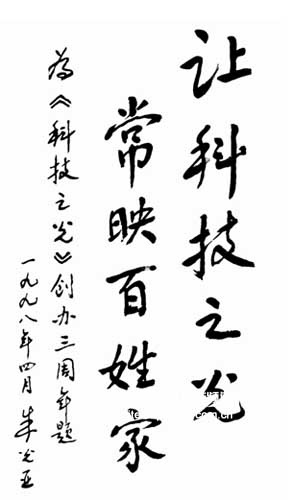 让科技之光
常映百姓家
为《科技之光》创办三周年题
一九九八年四月 朱光亚